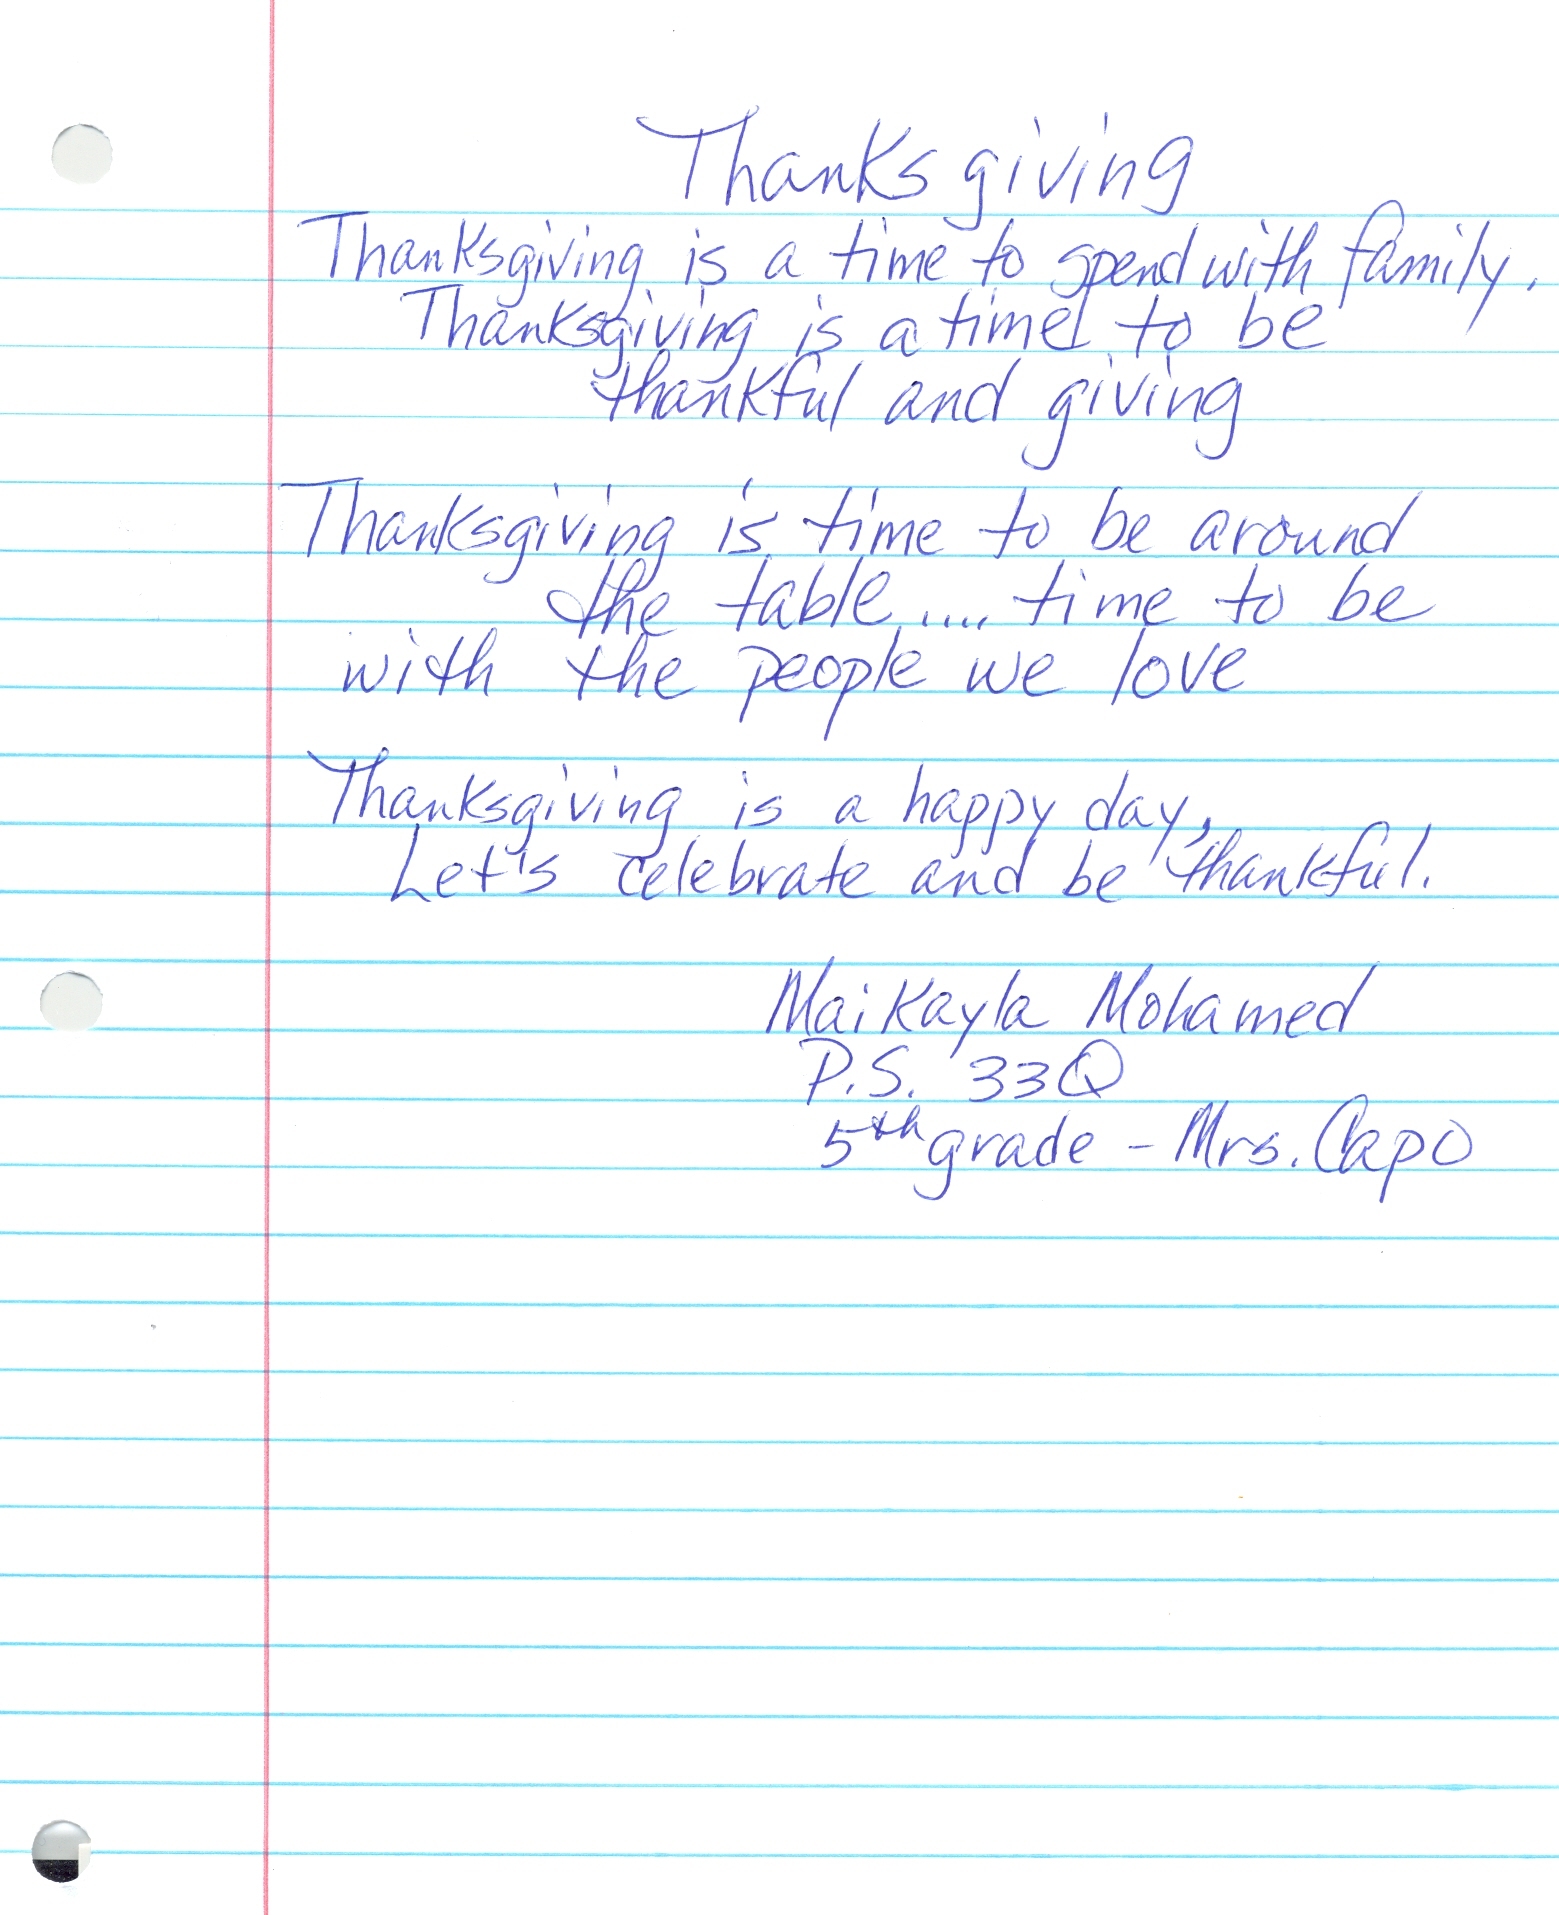 Thanksgiving
Thanksgiving is a time to spend with family.
Thanksgiving is a time to be
thankful and giving
Thanksgiving is time to be around
the table..... time to be
with the people we love
Thanksgiving is a happy day,
Let's celebrate and be thankful.
Maikayla Mohamed
P.S. 33Q
5th grade - Mrs. Capo